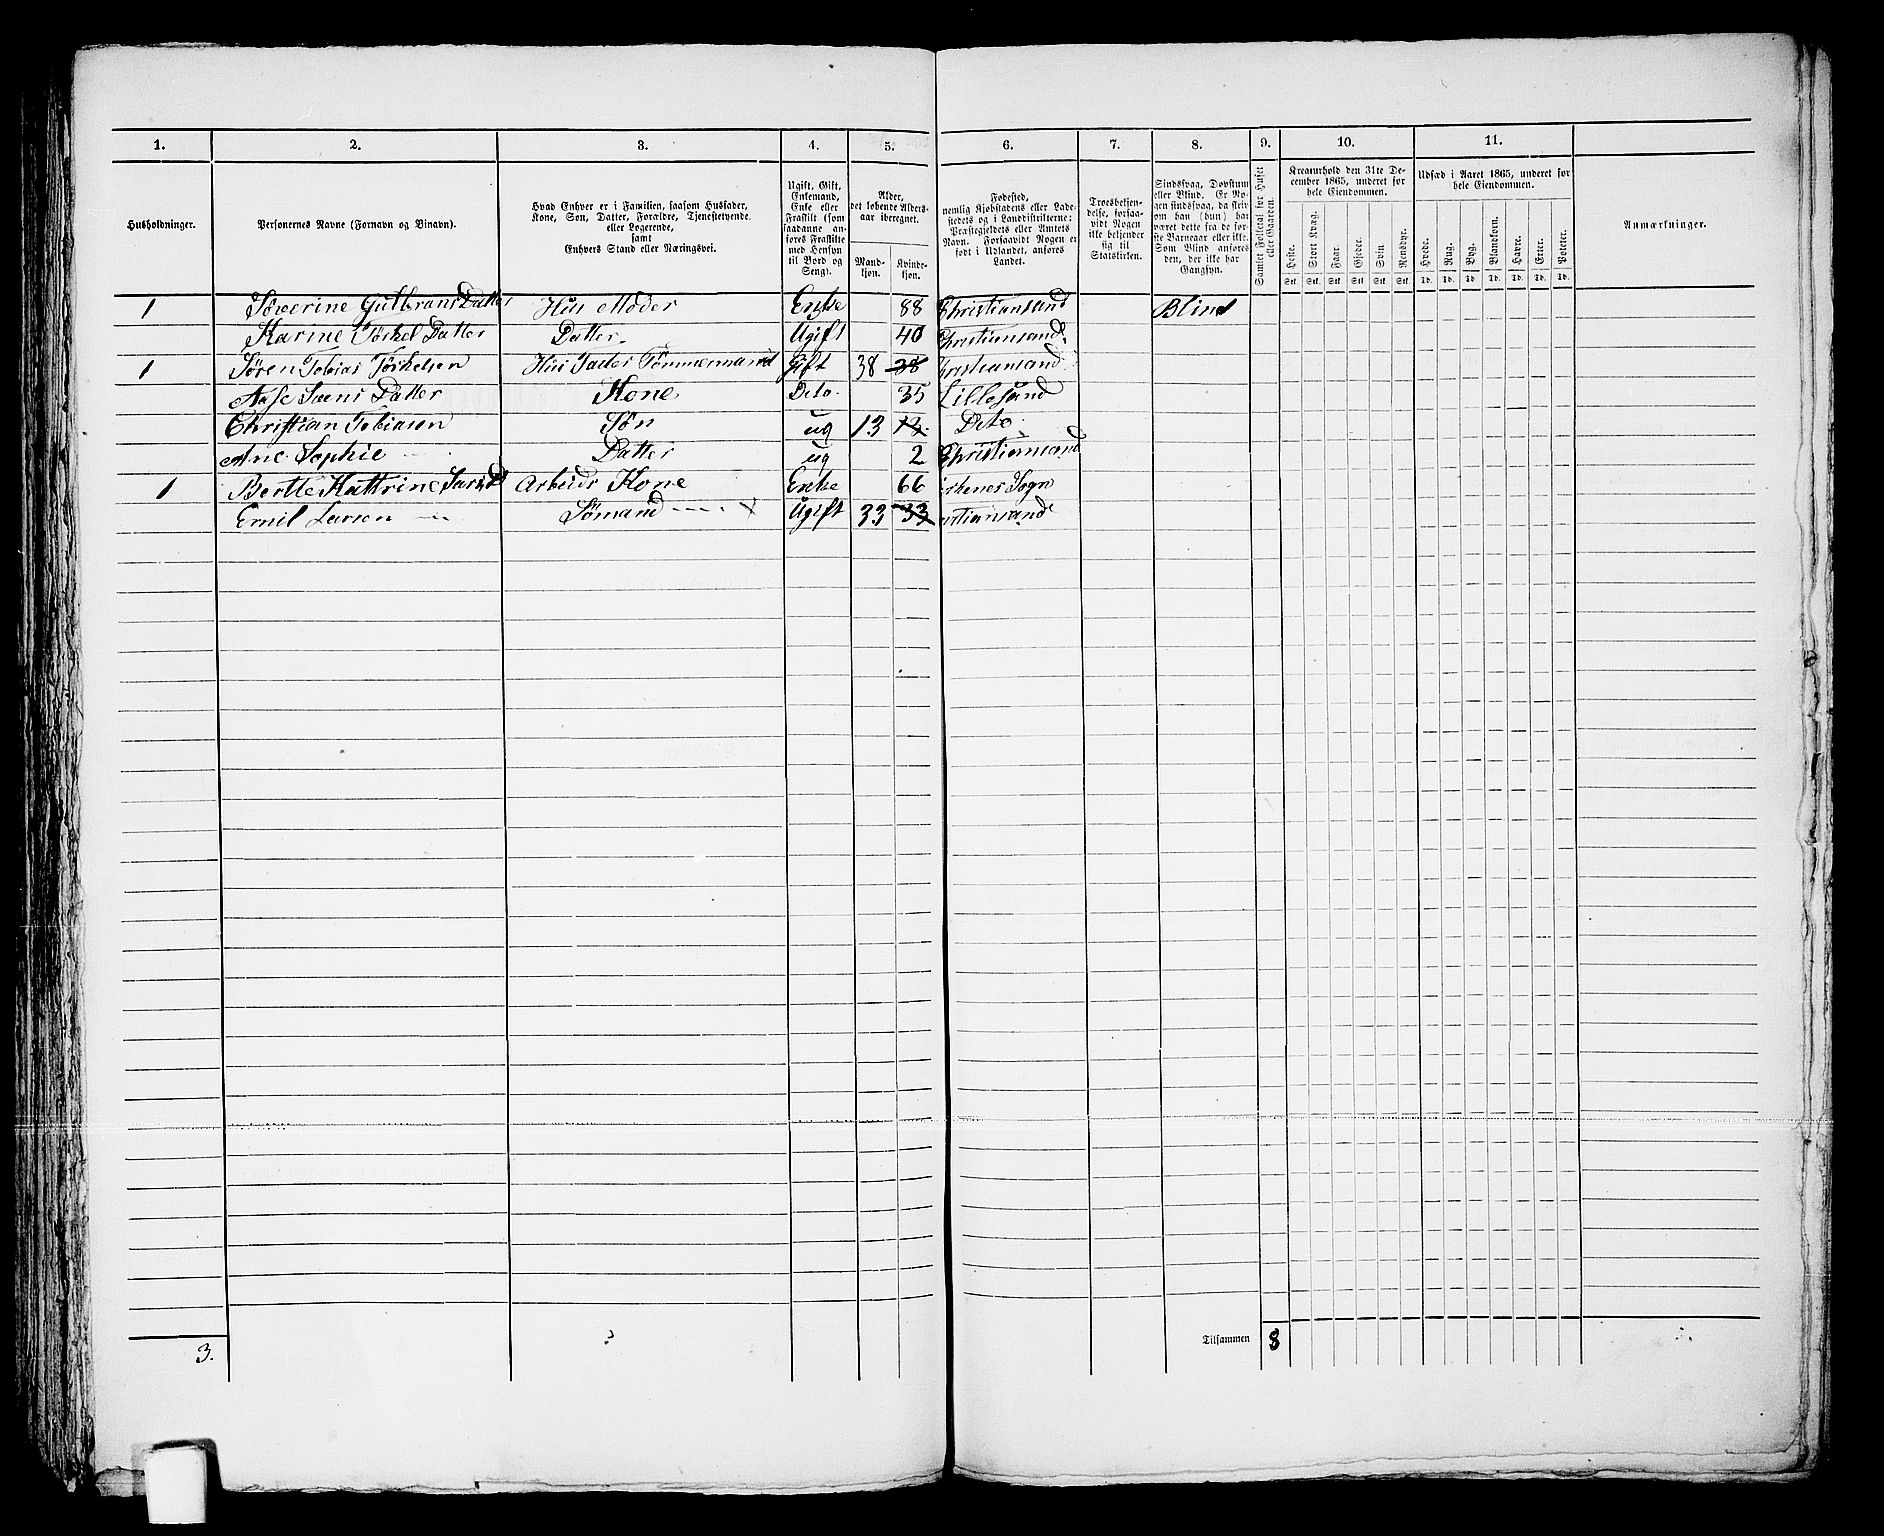 1. 2. 3. 4. 5. 6. 7. 8. 9. 10. 11.
Husholdninger.
Personernes Navne (Fornavn og Binavn).
Hvad Enhver er i Familien, saasom Husfader,
Kone, Søn, Datter, Forældre, Tjenestetyende
eller Logerende,
samt
Enhvers Stand eller Næringsvei.
Ugift, Gift,
Enkemand,
Enke eller
Fraskilt (som
saadanne an-
føres Fraskilte
med Hensyn
til Bord og
Seng).
Alder,
det løbende Alders-
aar iberegnet.
Mand-
kjøn.
Kvinde-
kjøn.
Fødested,
nemlig Kjøbstadens eller Lade-
stedets og i Landdistrikterne:
Præstegjeldets eller Amtets
Navn. Forsaavidt Nogen er
født i Udlandet, anføres
Landet.
Troesbekjen-
delse, forsaa-
vidt Nogen
ikke bekjender
sig til
Statskirken.
Sindssvag, Døvstum
eller Blind. Er No-
gen sindssvag, da skriv
om han (hun) har
været dette fra de før-
ste Barneaar eller ikke.
Som Blind anføres
den, der ikke har
Gangsyn.
Samlet Folketal for Huset
eller Gaarden.
Kreaturhold den 31te De-
cember 1865, underet før
hele Eiendommen.
Heste. Stort Kvæg. Faar. Gjeder. Svin. Rensdyr.
Stk. Stk. Stk. Stk. Stk. Stk.
Udsæd i Aaret 1865, underet før
hele Eiendommen.
Hvede. Rug. Byg. Blandkorn. Havre. Erter. Poteter.
Td. Td. Td. Td. Td. Td. Td.
Anmærkninger.
1 Søverine Gulbrans Datter Hus Moder Enke 88 Christiansand Blind
Karine Törkel Datter Datter. Ugift 40 Christiansand
1 Sören Tobias Törkelsen Hus Fader Tömmermand Gift 38 38 Christiansand
Aase Svens Datter Kone Deto. 35 Lillesand
Christian Tobiasen Søn ug 13 13. Deto
Ane Sophie Datter ug 2 Christiansand
1 Berte Kathrine Arbeids Kone Enke 66 irkenes Sogn
Emil Larsen Sömand X Ugift 33 33 istiansand
3.
Tilsammen 8